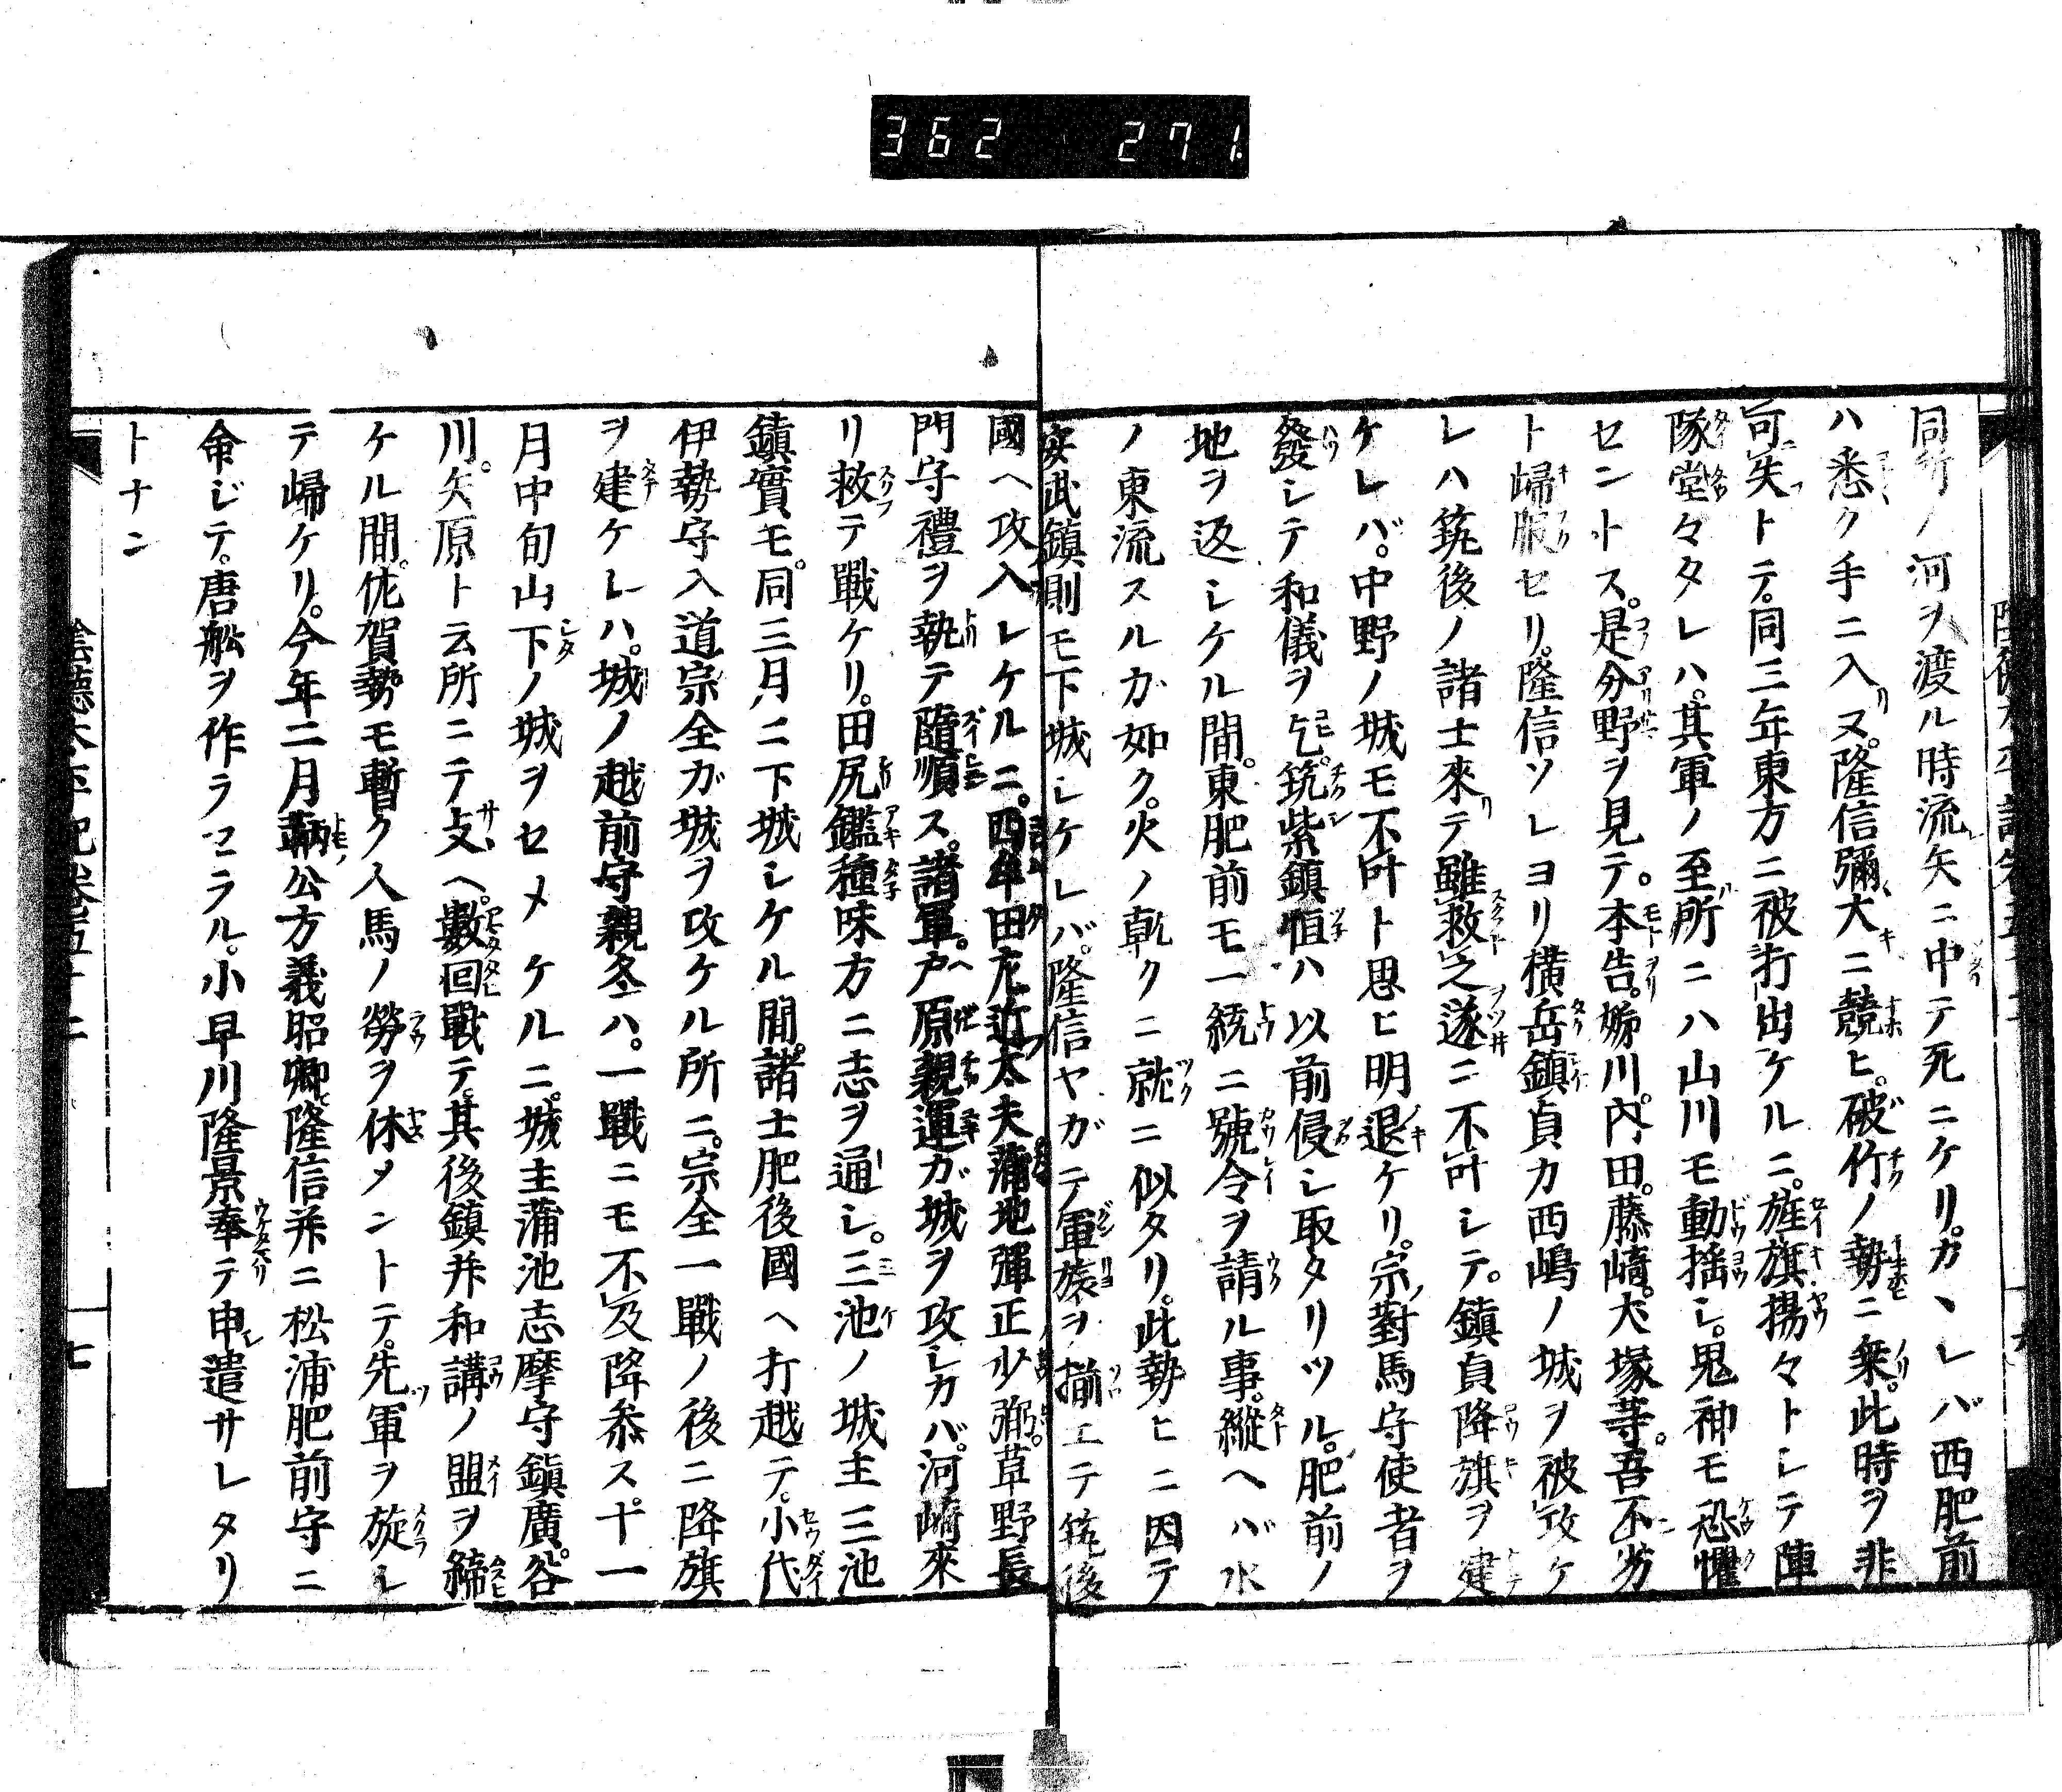 362 271
同所ノ河ヲ渡ル時流矢ニ中テ死ニケリ。カヽレバ西肥前
ハ悉ク手ニ入ヌ。隆信彌大ニ競ヒ。破竹ノ勢ニ乗。此時ヲ非
可失トテ。同三年東方ニ被打出ケルニ。旌旗揚々トシテ陣
隊堂々タレハ。其軍ノ至所ニハ山川モ動揺シ。鬼神モ恐懼
セントス。是分野ヲ見テ。本告。姉川。内田。藤崎。犬塚等。吾不劣
ト歸服セリ。隆信ソレヨリ横岳鎮貞カ西嶋ノ城ヲ被攻ケ
レハ筑後ノ諸士來テ雖救之遂ニ不叶シテ。鎮貞降旗ヲ建
ケレバ。中野ノ城モ不叶ト思ヒ明退ケリ。宗對馬守使者ヲ
發シテ和儀ヲ乞。筑紫鎮恒ハ以前侵シ取タリツル。肥前ノ
地ヲ返シケル間。東肥前モ一統ニ號令ヲ請ル事。縱ヘバ水
ノ東流スルカ如ク。火ノ乾クニ就ニ似タリ。此勢ヒニ因テ
安武鎮則モ下城シケレバ。隆信ヤガテ軍旅ヲ揃エテ筑後
國ヘ攻入レケルニ。四牟田左近太夫蒲池彈正少弼。草野長
門守禮ヲ執テ隨順ス。諸軍。戸原親運ガ城ヲ攻シカバ。河崎來
リ救テ戰ケリ。田尻鑑種味方ニ志ヲ通シ。三池ノ城主三池
鎮實モ。同三月ニ下城シケル間。諸士肥後國ヘ打越テ。小代
伊勢守入道宗全ガ城ヲ攻ケル所ニ。宗全一戰ノ後ニ降旗
ヲ建ケレハ。城ノ越前守親冬ハ。一戰ニモ不及降参ス。十一
月中旬山下ノ城ヲセメケルニ。城主蒲池志摩守鎮廣。谷
川。矢原ト云所ニテ支ヘ。數回戰テ。其後鎮并和講ノ盟ヲ締
ケル間。佐賀勢モ暫ク人馬ノ勞ヲ休メントテ。先軍ヲ旋シ
テ歸ケリ。今年二月鞆公方義昭卿。隆信并ニ松浦肥前守ニ
命ジテ。唐舩ヲ作ラセラル。小早川隆景奉テ申遣サレタリ
トナン
陰德太平記卷五十二
七